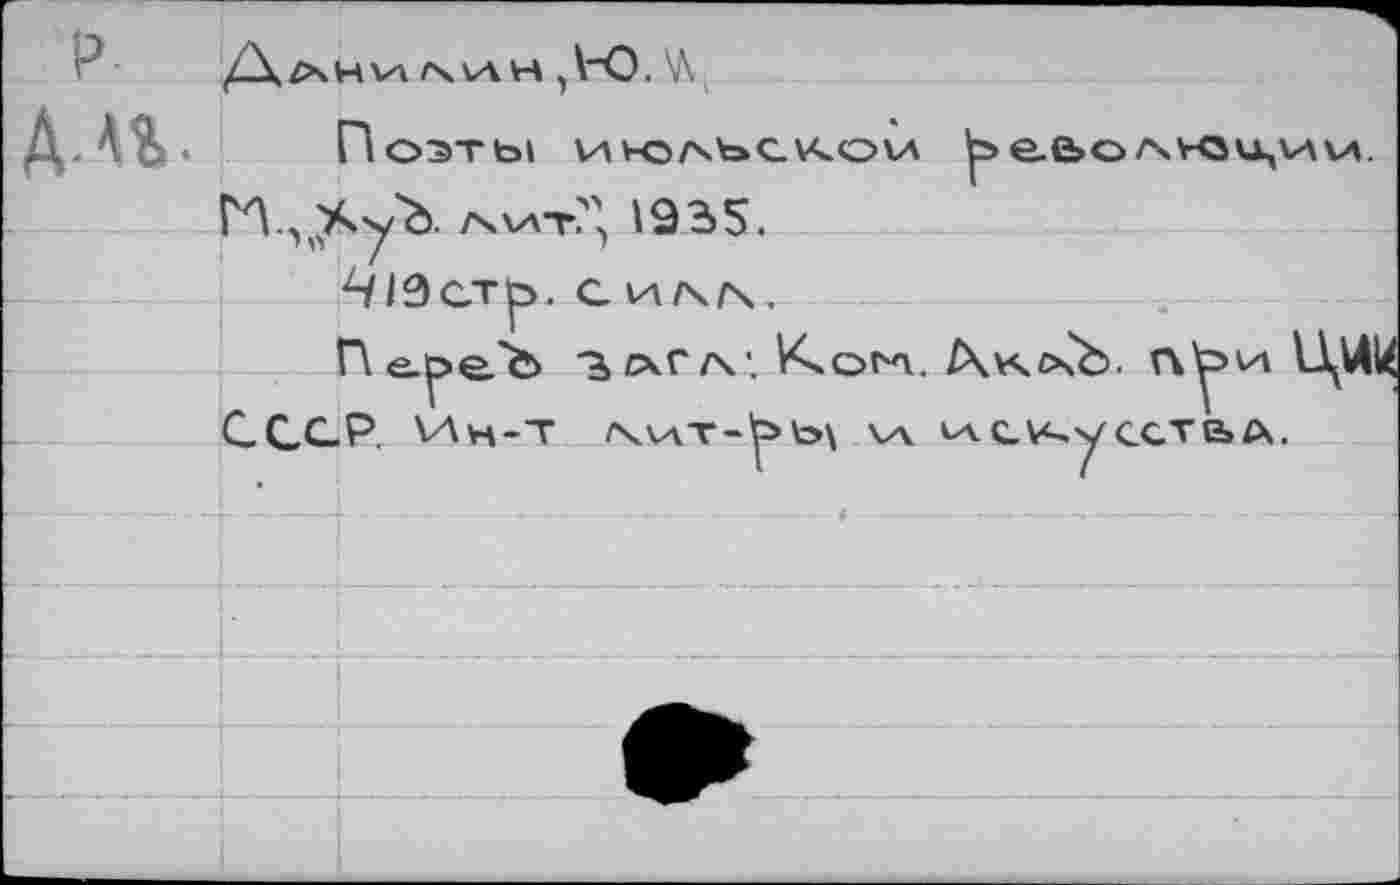 Р. Данилин, Ю. И.
Д.18. Поэты июльской революции.
М., „Худ. лит.", 1935.
419 стр. с илл.
Перед загл: Ком. Акад. при ЦИК
СССР. Ин-т лит-ры и искусства.